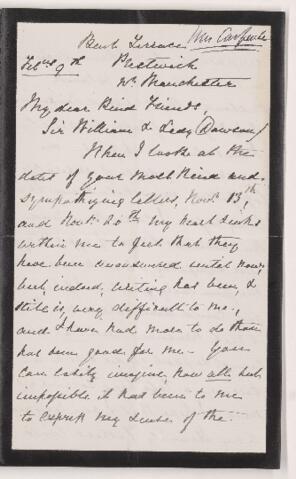 Mrs Carpenter
Bent Terrace
Feb. 9th Prestwich
Nr. Manchester
My dear Kind Friends,
Sir William & Lady Dawson/
When I look at the
dates of your most kind and
sympathizing letters, Novr. 13th
and Novr. 20th my heart sinks
within me to feel that they
have been unanswered until now,
but, indeed, writing has been, &
still is, very difficult to me,
and I have had more to do than
has been good for me— You
can easily imagine, how all but
impossible it has been to me
to express my sense of the